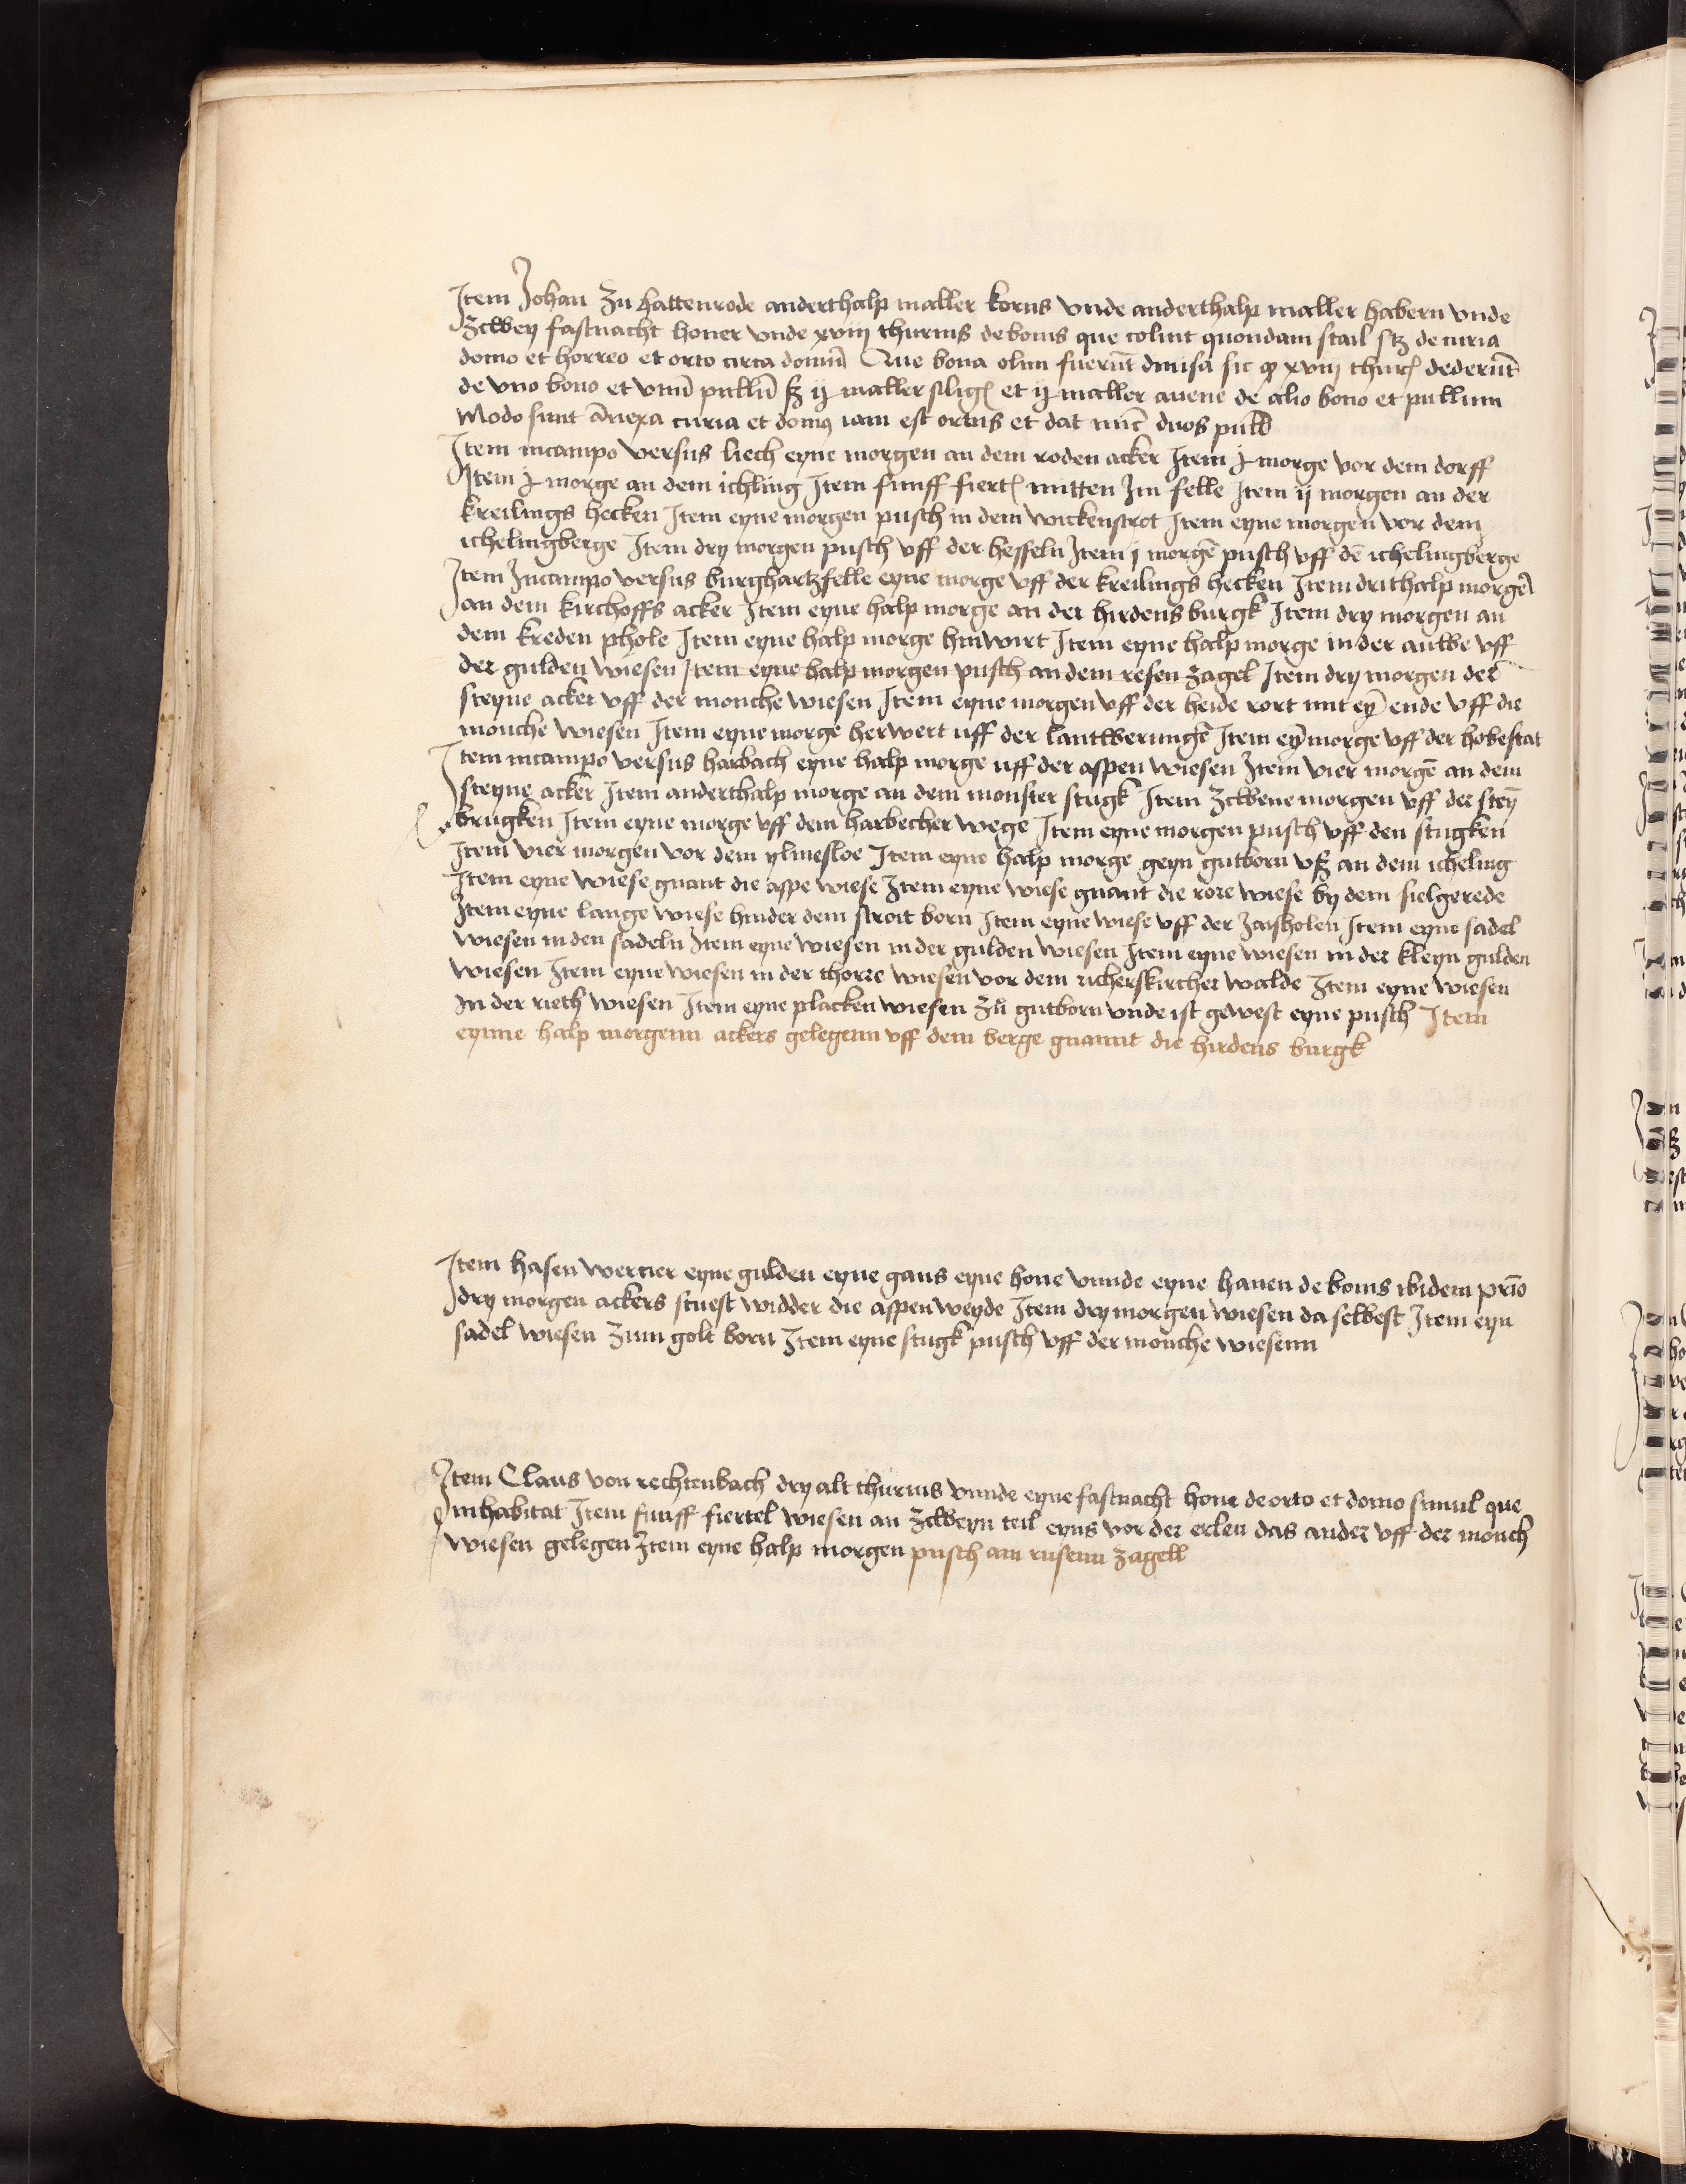 Item Johan zu hattenrode anderthalp maller korns vnde anderthalp maller habern vnde
zcwey fastnacht honer vnde xviij thurnis de bonis que colint quondam stail stz de curia
domo et horreo et orto circa domū Que bona olim fuerūt diuisa sic qͥ xviij thurꝭ dederūt
de vno bono et vnū pullū sz ij maller siligꝭ et ij maller auene de alio bono et pullum
Modo sunt ānexa curia et domꝰ iam est ortus et dat nūc duos pull
Item in campo versus liech eyne morgen an dem roden acker Item j morge vor dem dorff
Item j morge an dem ichling Item funff fiertꝭ mitten Im felle Item ij morgen an der
kreilings hecken Item eyne morgen pusch in dem wickenstrot Item eyne morgen vor dem
ichelingberge Item dry morgen pusch vff der hesseln Item j morgē pusch vff dē ichelingberge
Item In campo versus burghartzfelle eyne morge vff der kreilings hecken Item drithalp morgē
an dem kirchoffs acker Item eyne halp morge an der hirdens burgk Item dry morgen an
dem kreden phole Item eyne halp morge hinwirt Item eyne halp morge in der auwe vff
der gulden wiesen Item eyne halp morgen pusch an dem resen zagel Item dry morgen der
steyne acker vff der monche wiesen Item eyne morgen vff der heide rort mit eȳ ende vff die
monche wiesen Item eyne morge herwert uff der lantwerungē Item eyn morge vff der hobestat
Item in campo versus harbach eyne halp morge uff der aspen wiesen Item vier morgē an dem
steyne acker Item anderthalp morge an dem monster stugk Item zcwene morgen vff der steȳ
brugken Item eyne morge vff dem harbecher wege Item eyne morgen pusch vff den stugken
Item vier morgen vor dem ylmesloe Item eyne halp morge geyn gutborn vß an dem icheling
Item eyne wiese gnant die aspe wiese Item eyne wiese gnant die rore wiese by dem sielgerede
Item eyne lange wiese hinder dem stroit born Item eyne wiese vff der zaisholen Item eyne sadel
wiesen in den sadeln Item eyne wiesen in der gulden wiesen Item eyne wiesen in der kleyn gulden
wiesen Item eyne wiesen in der thorre wiesen vor dem richerskircher walde Item eyne wiesen
In der rieth wiesen Item eyne placken wiesen zů gutborn vnde ist gewest eyne pusch Item
eynne halp morgenn ackers gelegenn vff dem berge gnannt die hirdens burgk
Item hasen werner eyne gulden eyne gans eyne hone vnnde eyne hanen de bonis ibidem prīo
dry morgen ackers stuest widder die aspen weyde Item dry morgen wiesen da selbest Item eyn
sadel wiesen zum golt born Item eyne stugk pusch vff der monche wiesenn
Item Claus von rechtenbach dry alt thurnis vnnde eyne fastnacht hone de orto et domo simul que
inhabitat Item funff fiertel wiesen an zcweyn teil eyns vor der erlen das ander vff der monch
wiesen gelegen Item eyne halp morgen pusch am rusenn zagell